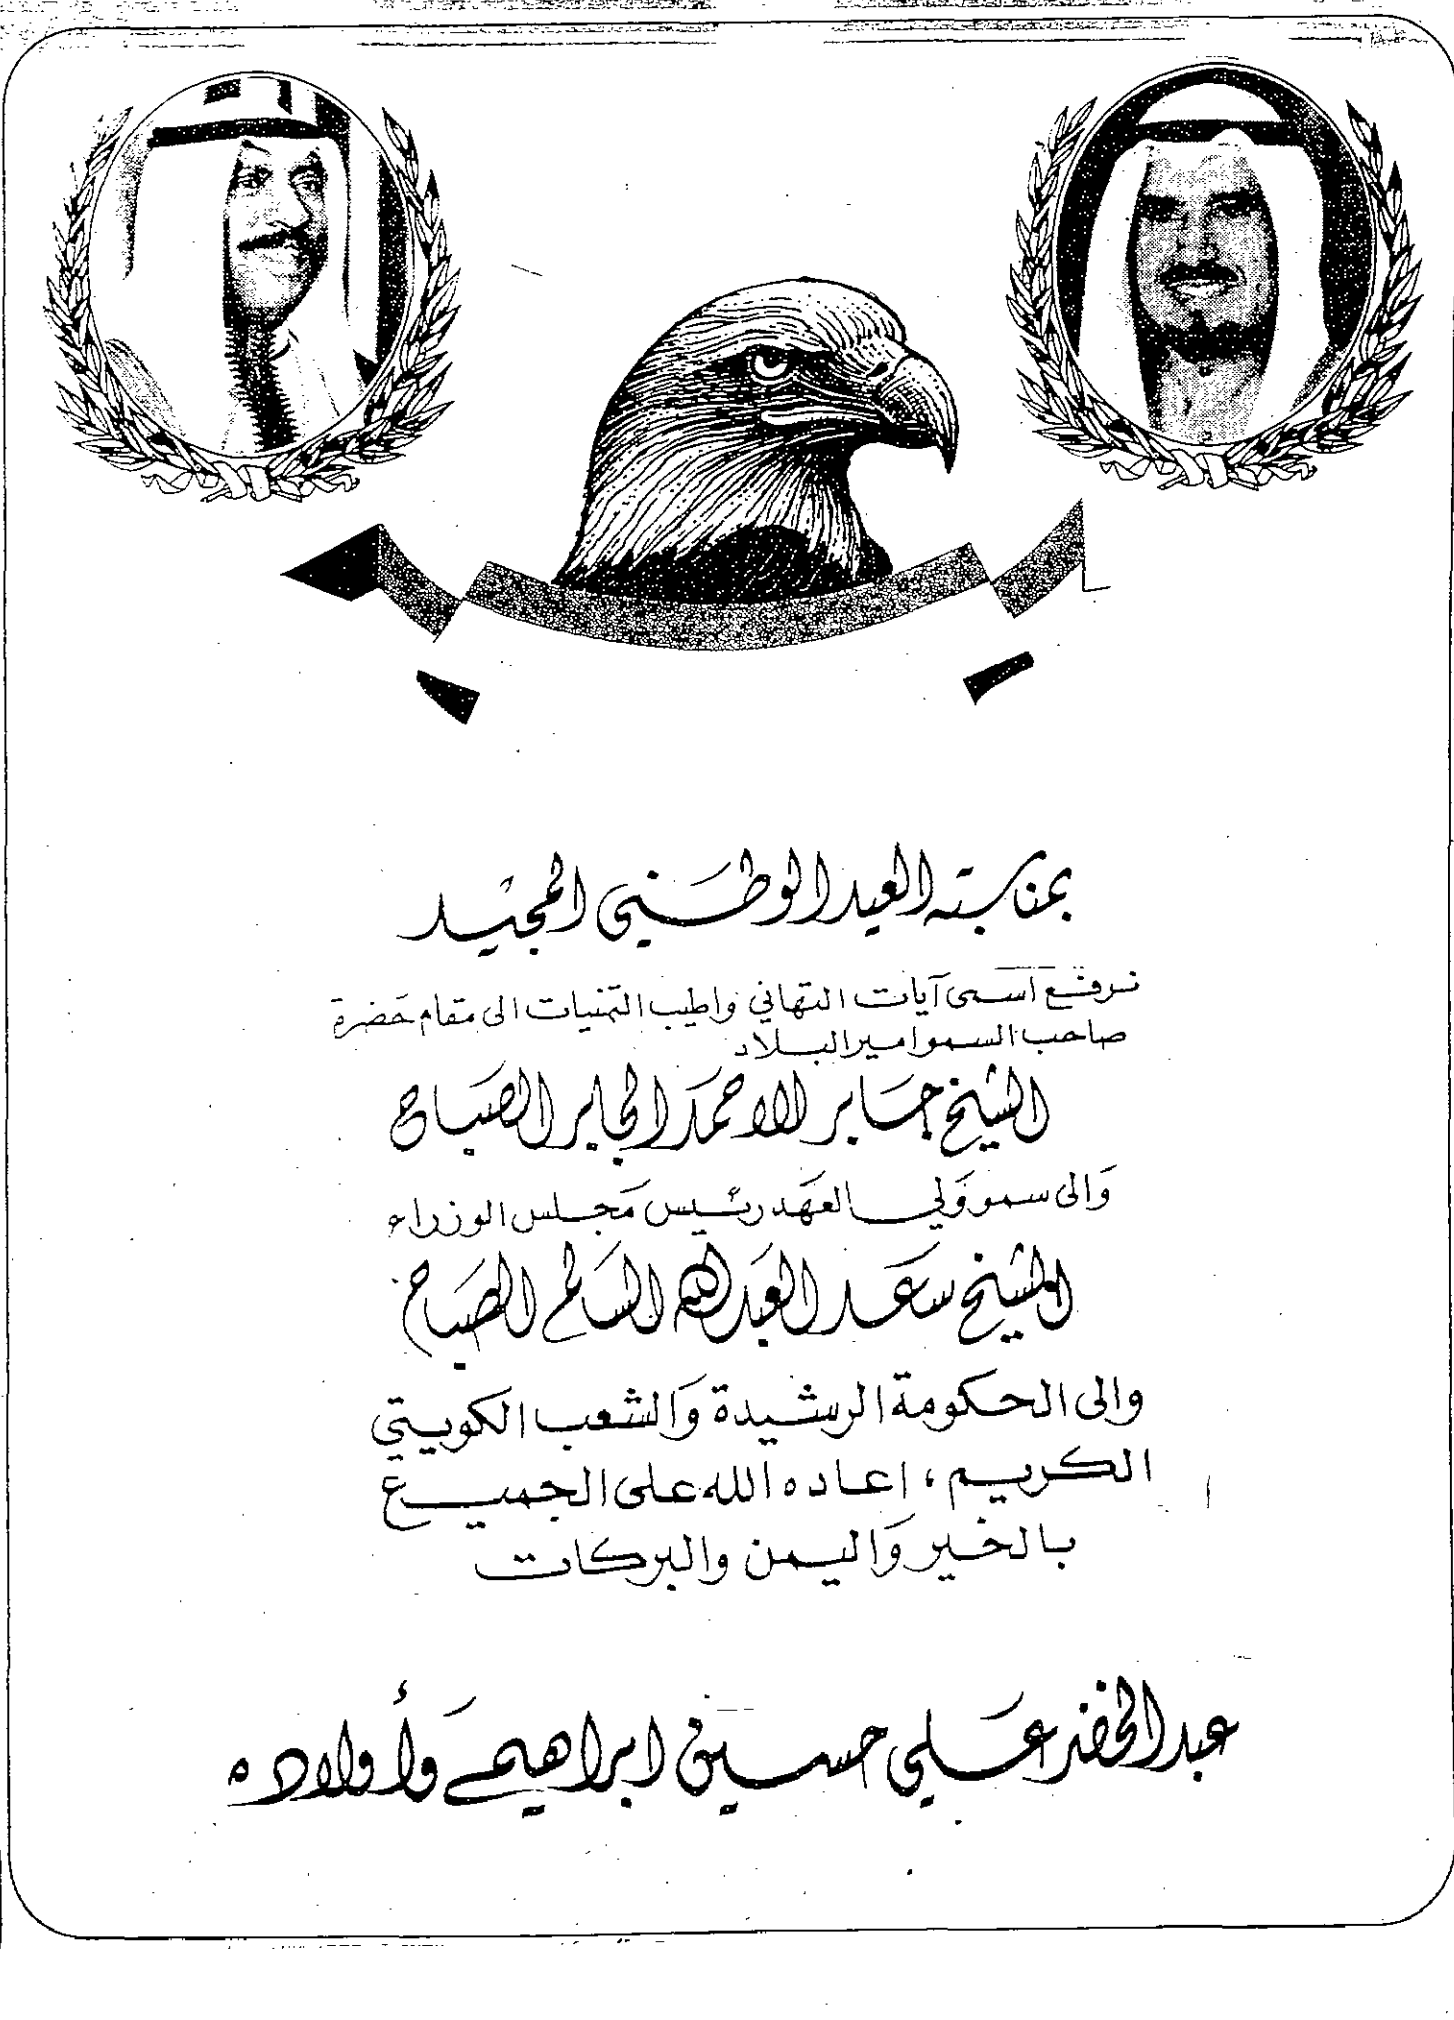 بمناسبة العيد الوطني المجيد
نرفع اسمى آيات التهاني واطيب التمنيات الى مقام حَضرة
صاحب السمو امير البلاد
الشيخ جَابر الاحمَد الجابر الصبَاح
وَالى سمو وَلي العهَد رئيس مَجلس الوزراء
الشيخ سَعد العبَدالله السَالم الصبَاح
والى الحكومة الرشيدة وَالشعب الكويتي
الكريم ، اعاده الله على الجميع
بالخير وَاليمن والبركات
عبدالخضر عَلي حسين ابراهيم وَأولاده